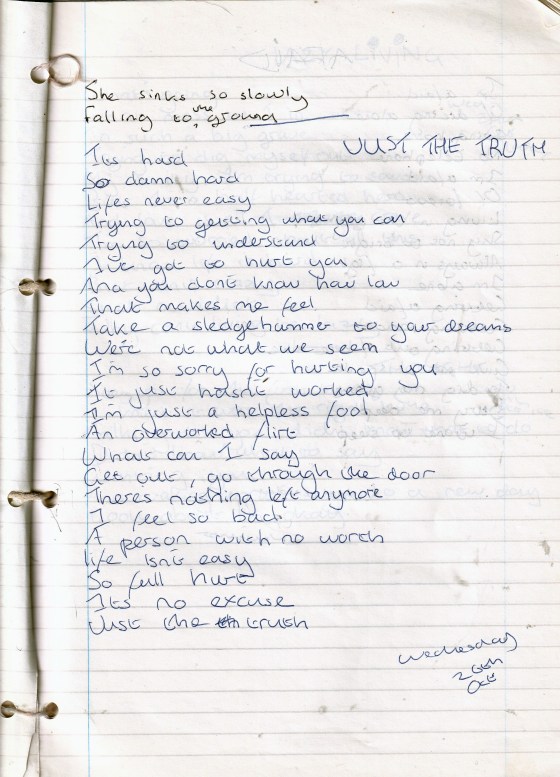 She sinks so slowly
Falling to the ground
JUST THE TRUTH
Its hard
So damn hard
Lifes never easy
Trying to getting what you can
Trying to understand
I've got to hurt you
And you dont know how low
That makes me feel
Take a sledgehammer to your dreams
We're not what we seem
I'm so sorry for hurting you
It just hasn't worked
I'm just a helpless fool
An overworked flirt
What can I say
Get out, go through the door
Theres nothing left anymore
I feel so bad.
A person with no worth
life isn't easy
So full hurt
Its no excuse
Just the truth
Wednesday
Oct